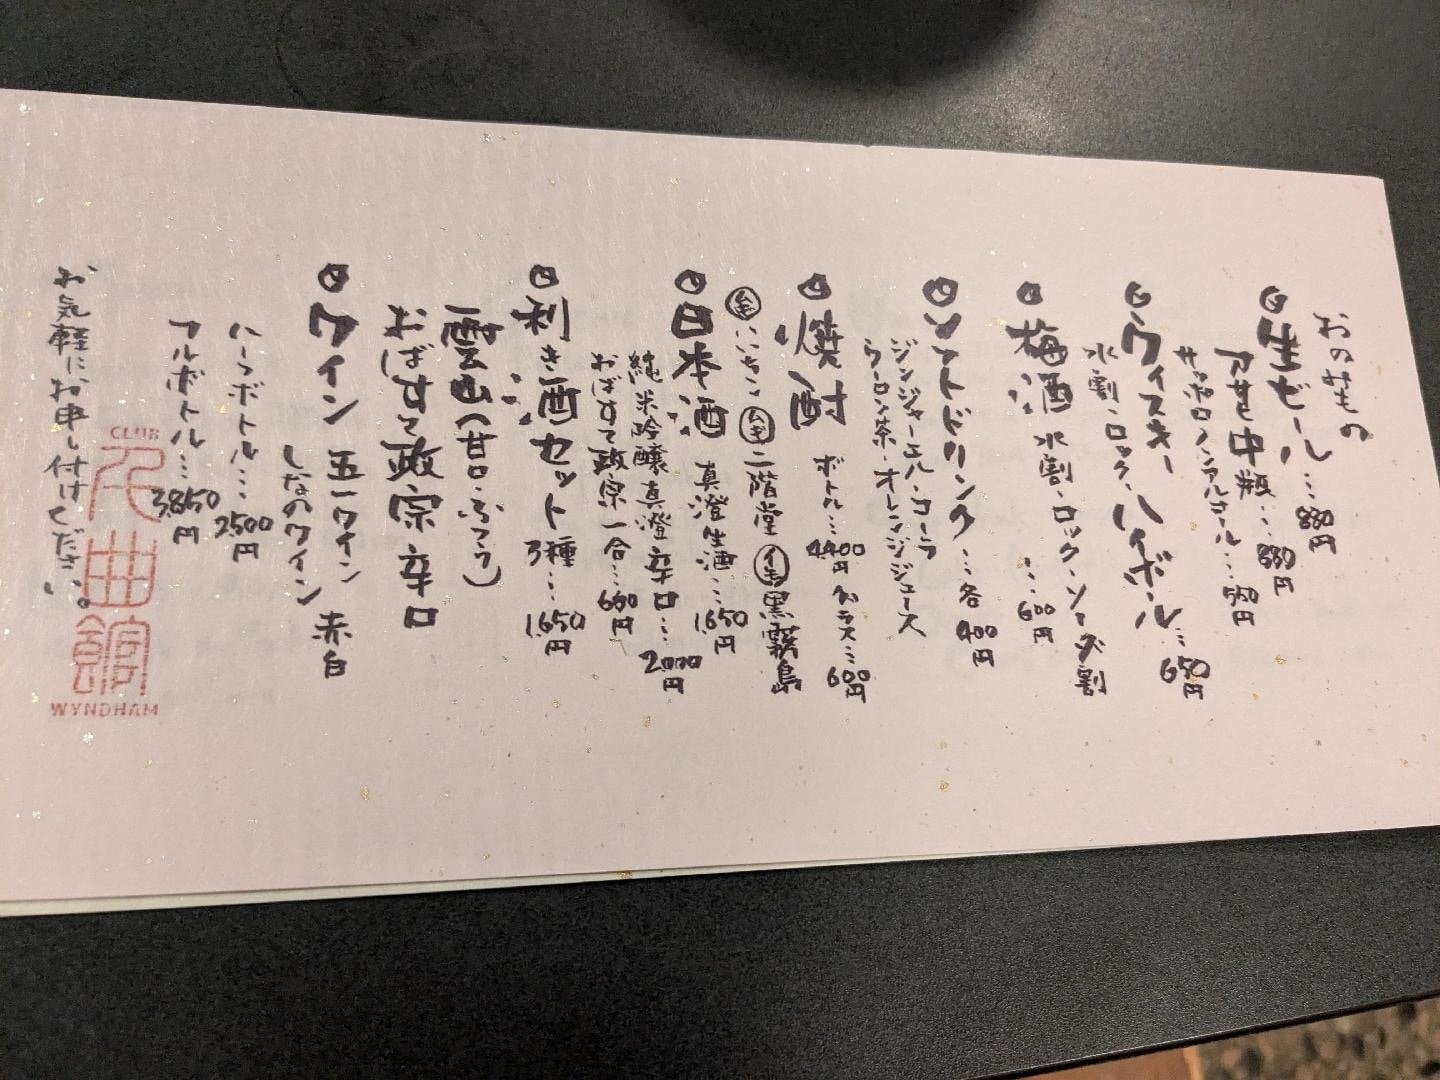 おのみもの
生ビール…880円
アサヒ中瓶…880円
サッポロノンアルコール…550円
ウイスキー ハイボール…650円
水割・ロック・ソーダ割
梅酒 水割・ロック・ソーダ割
…600円
ソフトドリンク…各400円
ジンジャーエール・コーラ
ウーロン茶・オレンジジュース
焼酎 ボトル…4400円 グラス…600円
麦いいちこ 麦二階堂 芋黒霧島
日本酒 真澄生酒…1,650円
純米吟醸真澄辛口…2000円
おばすて政宗一合…600円
利き酒セット 3種…1,650円
雲山(甘口・ふつう)
おばすて政宗 辛口
ワイン 五一ワイン 赤白
しなのワイン
ハーフボトル…2500円
フルボトル…3850円
お気軽にお申し付けください。
CLUB
曲
WYNDHAM